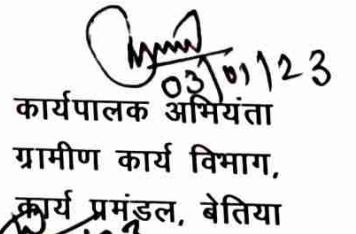 03/01/23
कार्यपालक अभियंता
ग्रामीण कार्य विभाग,
कार्य प्रमंडल, बेतिया